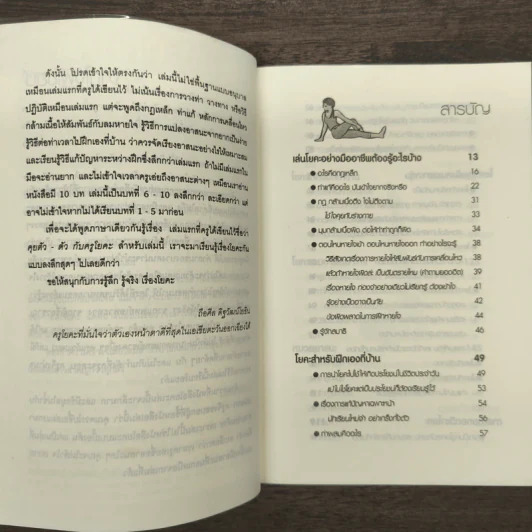 ดังนั้น โปรดเข้าใจให้ตรงกันว่า เล่มนี้ไม่ใช่พื้นฐานแบบอนุบาล
เหมือนเล่มแรกที่ครูได้เขียนไว้ ไม่เน้นเรื่องการวางท่า วางทาง หรือวิธี
ปฏิบัติเหมือนเล่มแรก แต่จะพูดถึงกฎเหล็ก ท่าแก้ หลักการเคลื่อนไหว
กล้ามเนื้อให้สัมพันธ์กับลมหายใจ รู้วิธีการแปลงอาสนะจากยากเป็นง่าย
รู้วิธีต่อท่าเวลาไปฝึกเองที่บ้าน ว่าควรจัดเรียงอาสนะอย่างไรให้เหมาะสม
และเรียนรู้วิธีแก้ปัญหาระหว่างฝึกซึ่งลึกกว่าเล่มแรก ถ้าไม่มีเล่มแรกใน
มือจะอ่านยาก และไม่เข้าใจเวลาครูเอ่ยถึงอาสนะต่างๆ เหมือนเราอ่าน
หนังสือมี 10 บท เล่มนี้เป็นบทที่ 6 - 10 ลงลึกกว่า ละเอียดกว่า แต่
อาจไม่เข้าใจหากไม่ได้เรียนบทที่ 1 - 5 มาก่อน
เพื่อจะได้พูดภาษาเดียวกันรู้เรื่อง เล่มแรกที่เขียนไว้ใช้ชื่อว่า
คุยตัว - ตัว กับครูโยคะ สำหรับเล่มนี้ เราจะมาเรียนรู้เรื่องโยคะกัน
แบบลงลึกสุดๆ ไปเลยดีกว่า
ขอให้สนุกกับการรู้ลึก รู้จริง เรื่องโยคะ
ครูโยคะที่มั่นใจว่าตัวเองหน้าตาดีที่สุดในเอเชียตะวันออกเฉียงใต้
สารบัญ
เล่นโยคะอย่างมืออาชีพต้องรู้อะไรบ้าง 13
● อะไรคือกฎเหล็ก 16
● ท่าแก้คืออะไร มันเข้าใจยากจริงหรือ 22
● กฎ กล้ามเนื้อตึง ใช่ไม่ตึงตาม 31
ใช้ใจคุยกับร่างกาย 34
● มุมกล้ามเนื้อผิด จัดให้ถูกท่าก็ผิด 34
● ตอนไหนหายใจเข้า ตอนไหนหายใจออก ทำอย่างไรจะรู้ 35
วิธีสังเกตเรื่องการหายใจให้สัมพันธ์กับการเคลื่อนไหว 39
แล้วถ้าหายใจผิดล่ะ เป็นอันตรายไหม (คำถามยอดฮิต) 40
เรื่องหายใจ ท่องจำอย่างเดียวไม่เรียกรู้ ต้องเข้าใจ 41
รู้อย่างเป็นอาจเป็นภัย 42
ข้อผิดพลาดในการฝึกหายใจ 44
● รู้จักสมาธิ 46
โยคะสำหรับฝึกเองที่บ้าน 49
● การนำโยคะไปใช้ให้เกิดประโยชน์ในชีวิตประจำวัน 49
แม้ไม่ใช่โยคะแต่เป็นประโยชน์ก็ต้องเรียนรู้ไว้ 53
● เรื่องการแก้ปัญหาเฉพาะหน้า 54
นักเรียนใหม่จ๋า อย่าเกร็งทั้งตัว 56
● ท่าผสมคืออะไร 57